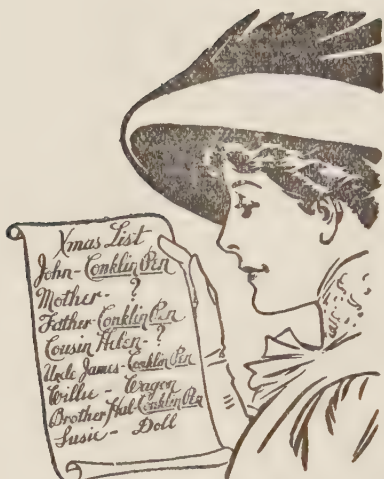 Xmas List
John - Conklin Pen
Mother - ?
Father - Conklin Pen
Cousin Helen - ?
Uncle James - Conklin Pen
Willie - Wagon
Brother Hal - Conklin Pen
Susie - Doll